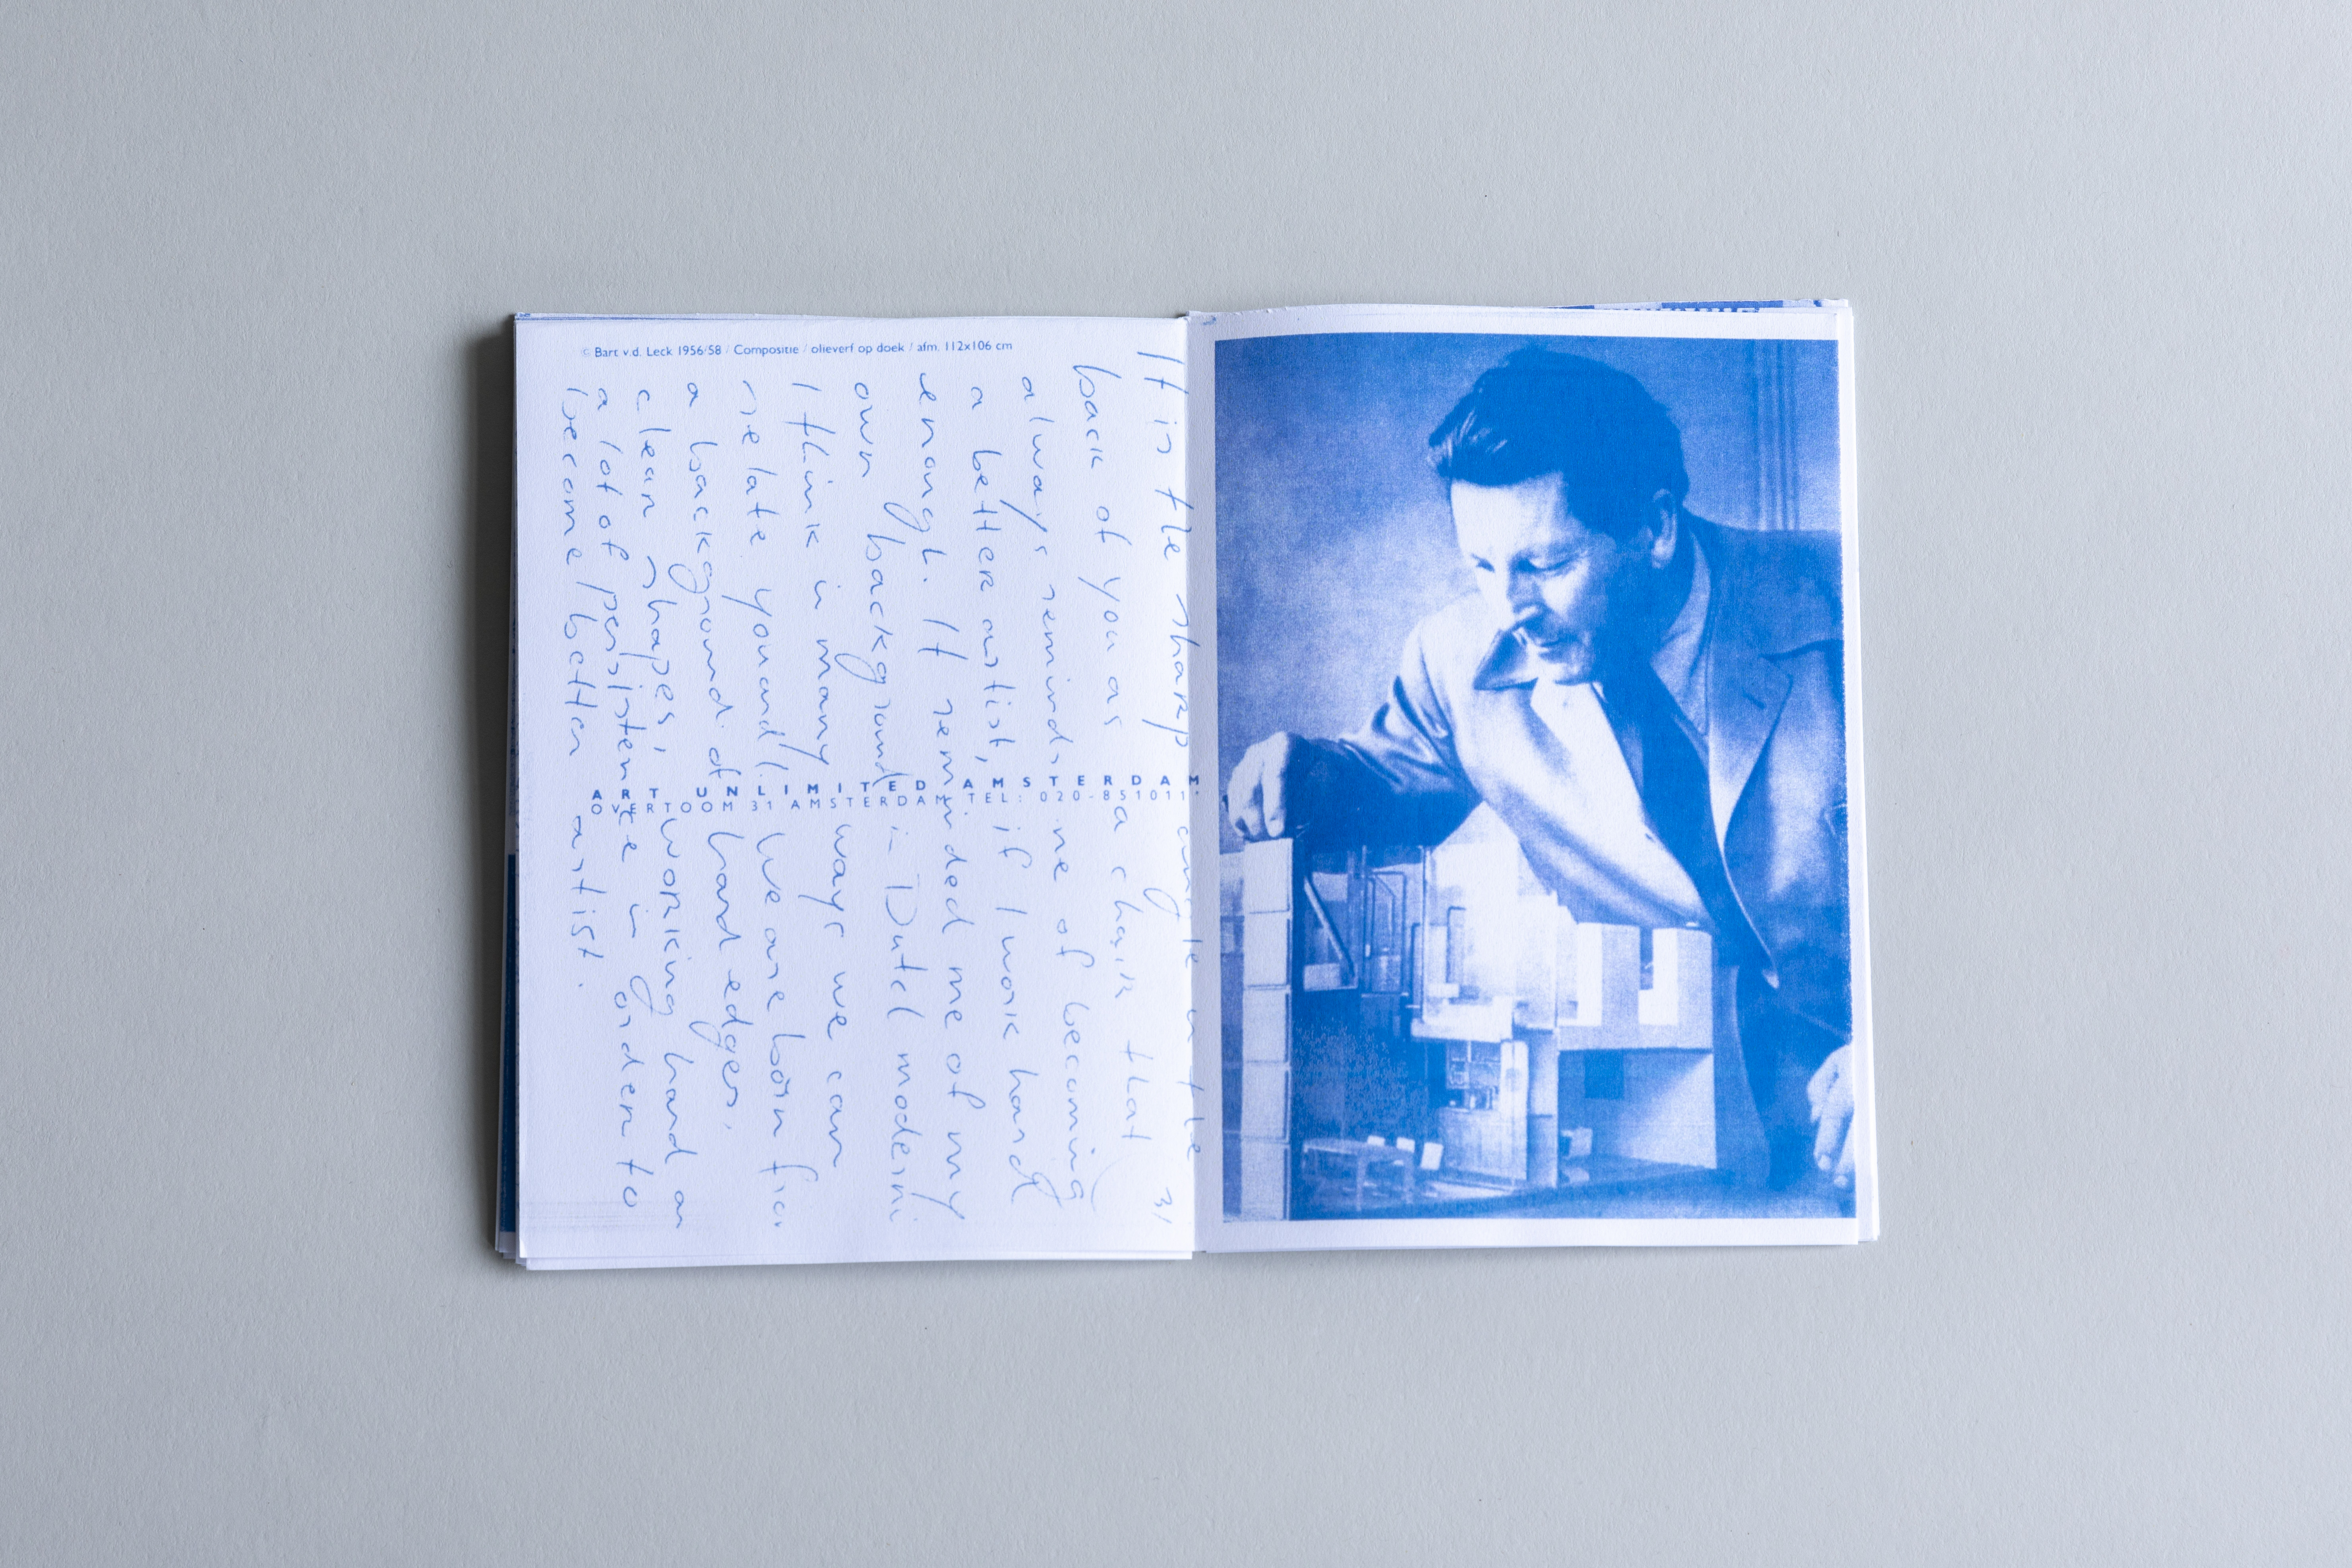 © Bart v.d. Leck 1956/58 / Compositie / olieverf op doek / afm. 112x106 cm
It is the sharp angle in the
back of you as a chair that
always reminds me of becoming
a better artist, if I work hard
enough. It reminded me of my
own background in Dutch modern
I think in many ways we can
relate you and I. We are born
a background of hard edges,
clean shapes, working hard an
a lot of persistence in order to
become / better artist.
31
ART UNLIMITED AMSTERDAM
OVERTOOM 31 AMSTERDAM TEL: 020-851011